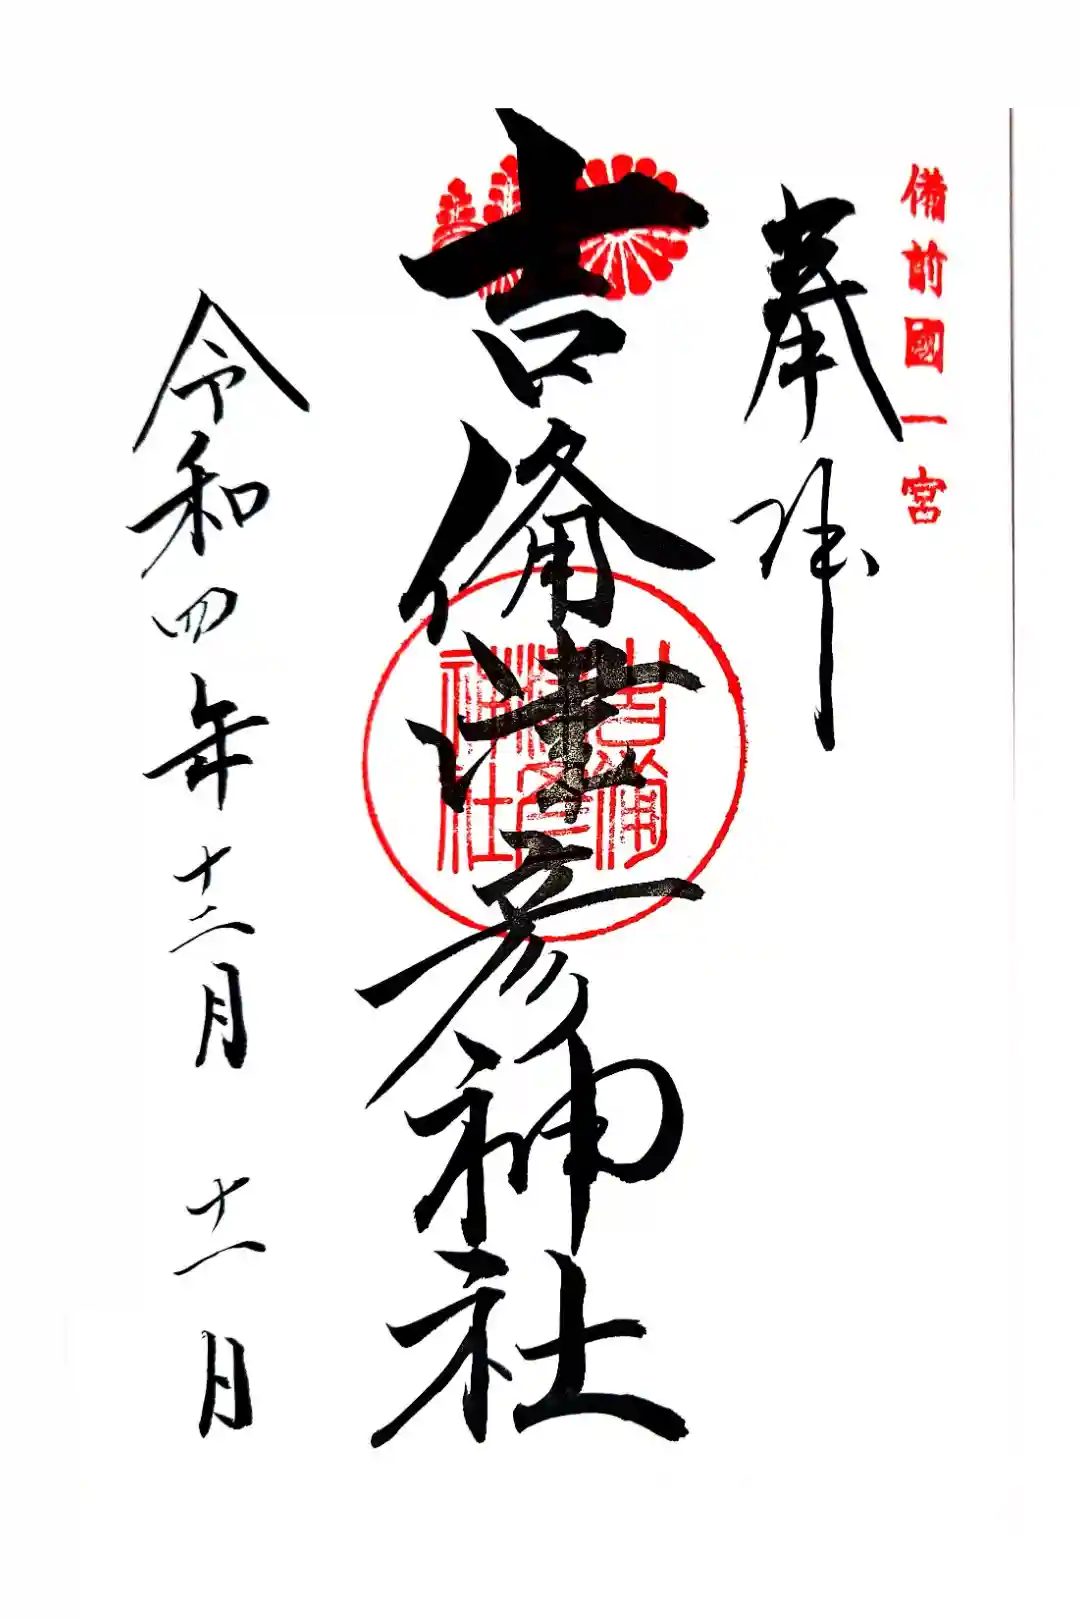 備前國一宮
奉拝
吉備津彦神社
吉備津彦神社
令和四年十二月十一月